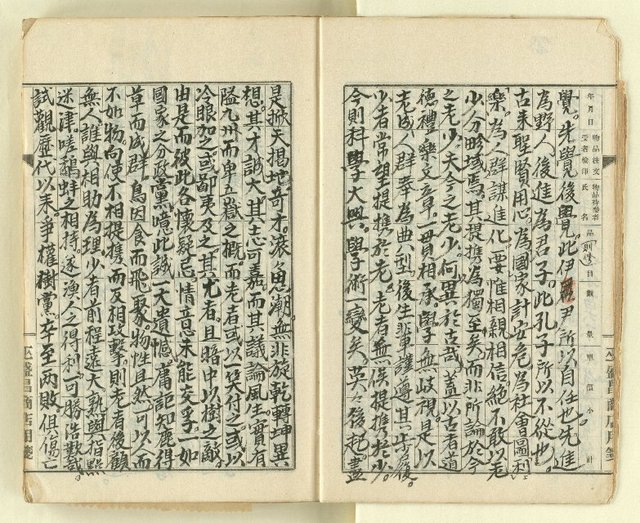 年月日
物品授受者檢印
物品持參者氏名
品目
數
量
單價
小計
覺。先覺覺後覺。此伊尹所以自任也。先進
為野人後進為君子。此孔子所以不從也。
古來聖賢用心。為國家計安危為社會圖利
樂。為人群謀進化。要惟相親相信。絕不敢以老
少分畛域焉。其提携為獨至矣。而非所論於今
之老少。夫今之老少。何異於古哉。蓋以古者道
德禮樂文章。一貫相承。學無歧視。是以
老成人都為典型。後生輩謹遵其步履。
少者常望提携於老。老者無俟提携於少。
今則科學大興。學術一變矣。英々後起。盡
是掀天揭地奇才。滾々思潮。無非旋乾轉坤異
想。其才誠大。其志可嘉。而其議論風生。實有
隘九州而卑五嶽之概。而老者或以一笑付之。或以
冷眼加之。或鄙夷及之。其尤者且暗中以樹之敵。
由是而彼此各懷疑忌。情意未能交孚。一如
國家之分政黨。噫此誠一大遺憾。甯記知鹿得
草而成群。鳥因食而飛聚。物性且然。可以人而
不如物。向使不相提携。而反相攻擊。則老者後顧
無人。誰與相助為理。少者前程遠大。孰與指點
迷津。嗟。鷸蚌之相持。遂漁人之得利。可勝浩歎哉。
試觀歷代以來。爭權樹黨。卒至兩敗俱傷。亡
巫盛昌商店用箋
巫盛昌商店用箋